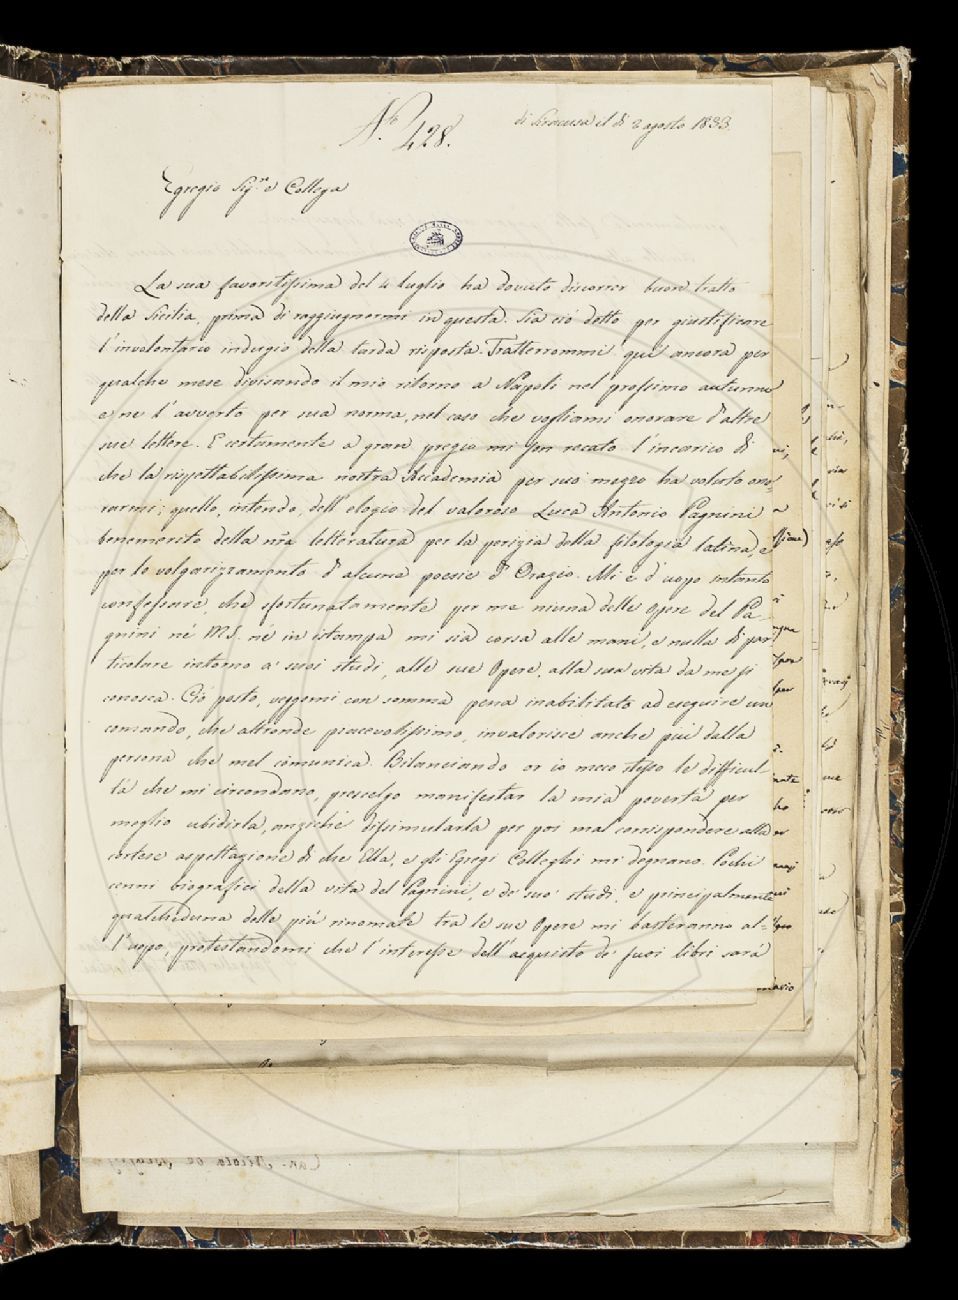 di Siracusa il dì 2 agosto 1833.
N.° 428.
Egregio Sig.re e Collega
La sua favoritissima del 4 luglio ha dovuto discorrer buon tratto
della Sicilia, prima di raggiugnermi in questa. Sia ciò detto per giustificare
l'involontario indugio della tarda risposta. Tratterrommi qui ancora per
qualche mese divisando il mio ritorno a Napoli nel prossimo autunno
e ne l'avverto per sua norma, nel caso che vogliami onorare d'altre
sue lettere. E certamente a gran pregio mi son recato l'incarico di
che la rispettabilissima nostra Accademia per suo mezzo ha voluto ono=
rarmi; quello, intendo, dell'elogio del valoroso Luca Antonio Pagnini
benemerito della nr̃a letteratura per la perizia della filologia latina, e
per lo volgarizzamento d'alcune poesie d'Orazio. Mi è d'uopo intanto
confessare, che sfortunatamente per me niuna delle Opere del Pa-
gnini né MS. né in istampa mi sia corsa alle mani, e nulla di par
ticolare intorno a' suoi studi, alle sue Opere, alla sua vita da me si
conosca. Ciò posto, veggomi con somma pena inabilitato ad eseguire un
comando, che altronde piacevolissimo, invalorisce anche più dalla
persona che mel comunica. Bilanciando or io meco stesso le difficul-
tà che mi circondano, prescelgo manifestar la mia povertà per
meglio ubidirla, anziché dissimularla per poi mal corrispondere alla
cortese aspettazione di che Ella, e gli Egregi Colleghi mi degnano. Pochi
cenni biografici della vita del Pagnini, e de' suoi studi, e principalmente
qualcheduna delle più rinomate tra le sue Opere mi basteranno al=
l'uopo, protestandomi che l'interesse dell'acquisto de' suoi libri sarà